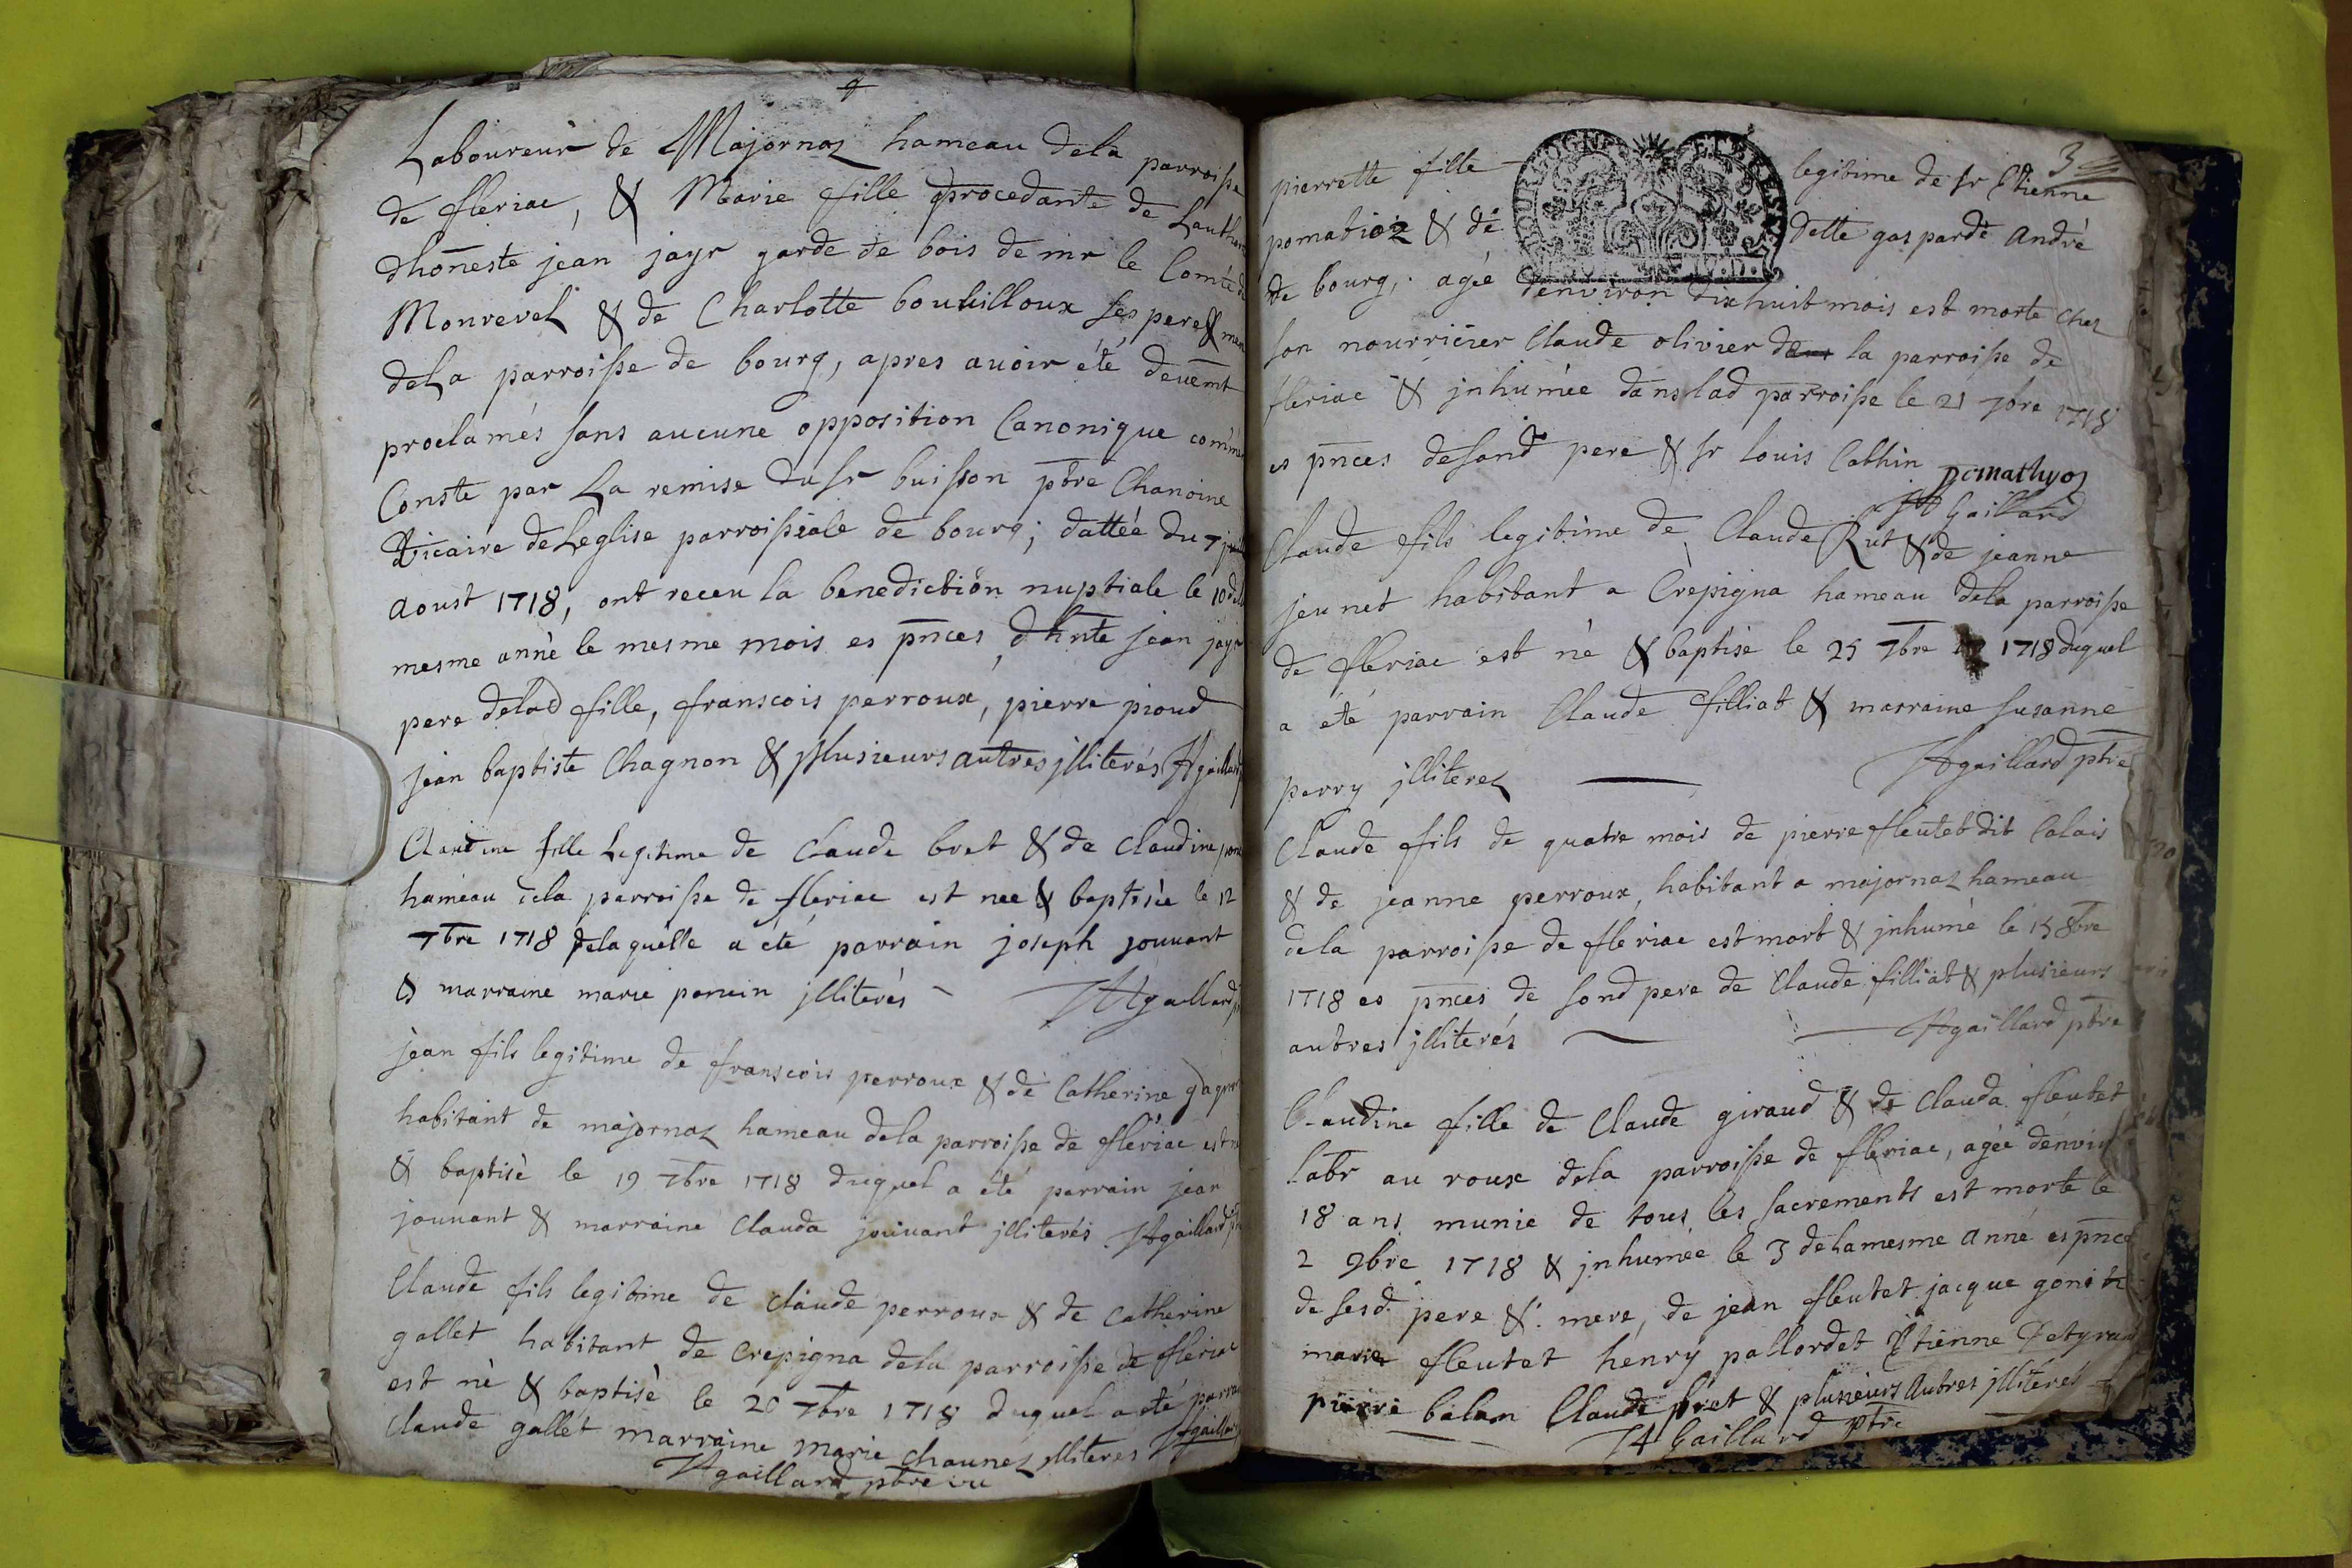 Laboureur de Majornaz hameau dela parroisse
de fleriac, & Marie fille procedante de Lauthori
dhoneste jean jayr garde de bois de mr le Comte de
Monrevel & de Charlotte bouhilloux ses pere & mere
deLa parroisse de bourg, apres avoir été deuemt
proclamés sans aucune opposition Canonique comme
Conste par La remise du sr buisson pbre Chanoine
Vicaire deLeglise parroissiale de bourg; dattée du 7
Aoust 1718, ont receu la benediction nuptiale le 10 dela
mesme anné le mesme mois es pnces, dhnte jean jayr
pere delad fille, franscois perroux, pierre pioud
jean baptiste Chagnon & plusieurs autres jlliterés JAgaillard
Claudine fille Legitime de Claude bret & de Claudine
hameau dela parroisse de fleriac est nee & baptisée le 12
7bre 1718 delaquelle a été parrain joseph jouuant
& marraine marie poncin jlliterés JAgaillard
jean fils legitime de franscois perroux & de Catherine gagn
habitant de majornaz hameau dela parroisse de fleriac est
& baptisé le 19 7bre 1718 duquel a été parrain jean
jouuant & marraine Clauda jouuant jlliterés JAgaillard
Claude fils legitime de claude perroux & de Catherine
gallet habitant de crepigna dela parroisse de fleriac
est né & baptisé le 20 7bre 1718 duquel a eté parra
Claude gallet marraine marie chaunez jlliterés JAgaillard
JAgaillard pbre vu
3
pierrette fille legitime de sr Etienne
pomatioz & de delle gasparde André
de bourg, agée denviron dixhuit mois est morte chez
son nourricier Claude olivier de la parroisse de
fleriac & jnhumée dans lad parroisse le 21 7bre 1718
es pnces desond pere & sr louis Cathin pomathyoz
JA Gaillard
Claude fils legitime de Claude Rut & de jeanne
jeunet habitant a Crepigna hameau dela parroisse
de fleriac est né & baptisé le 25 7bre 1718 duquel
a été parrain Claude filliat & marraine susanne
perry jlliterez JAgaillard pbre
Claude fils de quatre mois de pierre fleutet dit Calais
& de jeanne perroux, habitant a majornaz hameau
dela parroisse de fleriac est mort & jnhumé le 15 8bre
1718 es pnces de sond pere de Claude filliat & plusieurs
autres jlliterés JAgaillard pbre
Claudine fille de Claude giraud & de Clauda fleutet
labr au roux dela parroisse de fleriac, agée denvir
18 ans munie de tous les sacrements est morte le
2 9bre 1718 & jnhumée le 3 delamesme anné es pnces
de sesd. pere & mere, de jean fleutet jacque
marie fleutet henry pallordet Etienne
pierre balan Claude bret & plusieurs Autres jlliterés
JA Gaillard pbre